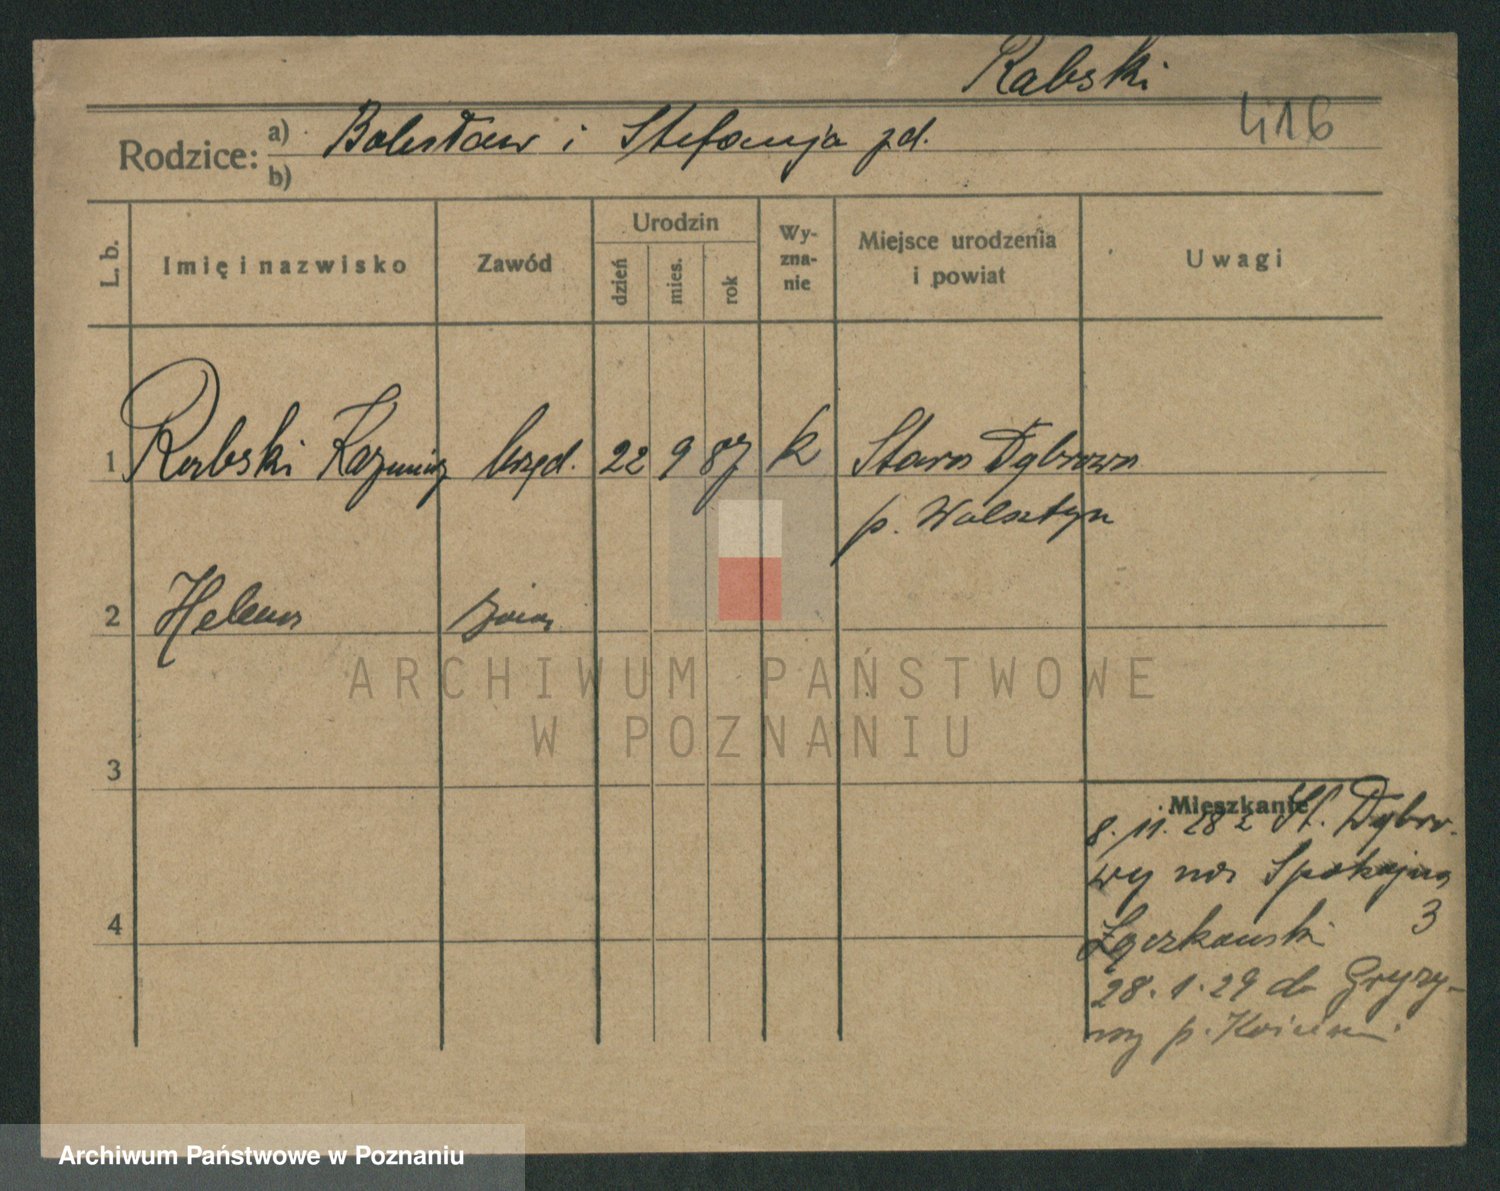 Rabski
416
Rodzice: a) Bolesław i Stefanja zd.
b)
L. b. Imię i nazwisko Zawód Urodzin dzień mies. rok Wy-zna-nie Miejsce urodzenia i powiat Uwagi
1 Rabski Kazimierz urzęd. 22 9 87 k Stara Dąbrowa
p. Wolsztyn
2 Helena żona
3
4
Mieszkanie
8. 11. 28 z St. Dąbro-
wy na Spokojna
3
Łączkowski
28. 1. 29 do Gryży-
ny p. Kościan.
ARCHIWUM PAŃSTWOWE
W POZNANIU
Archiwum Państwowe w Poznaniu